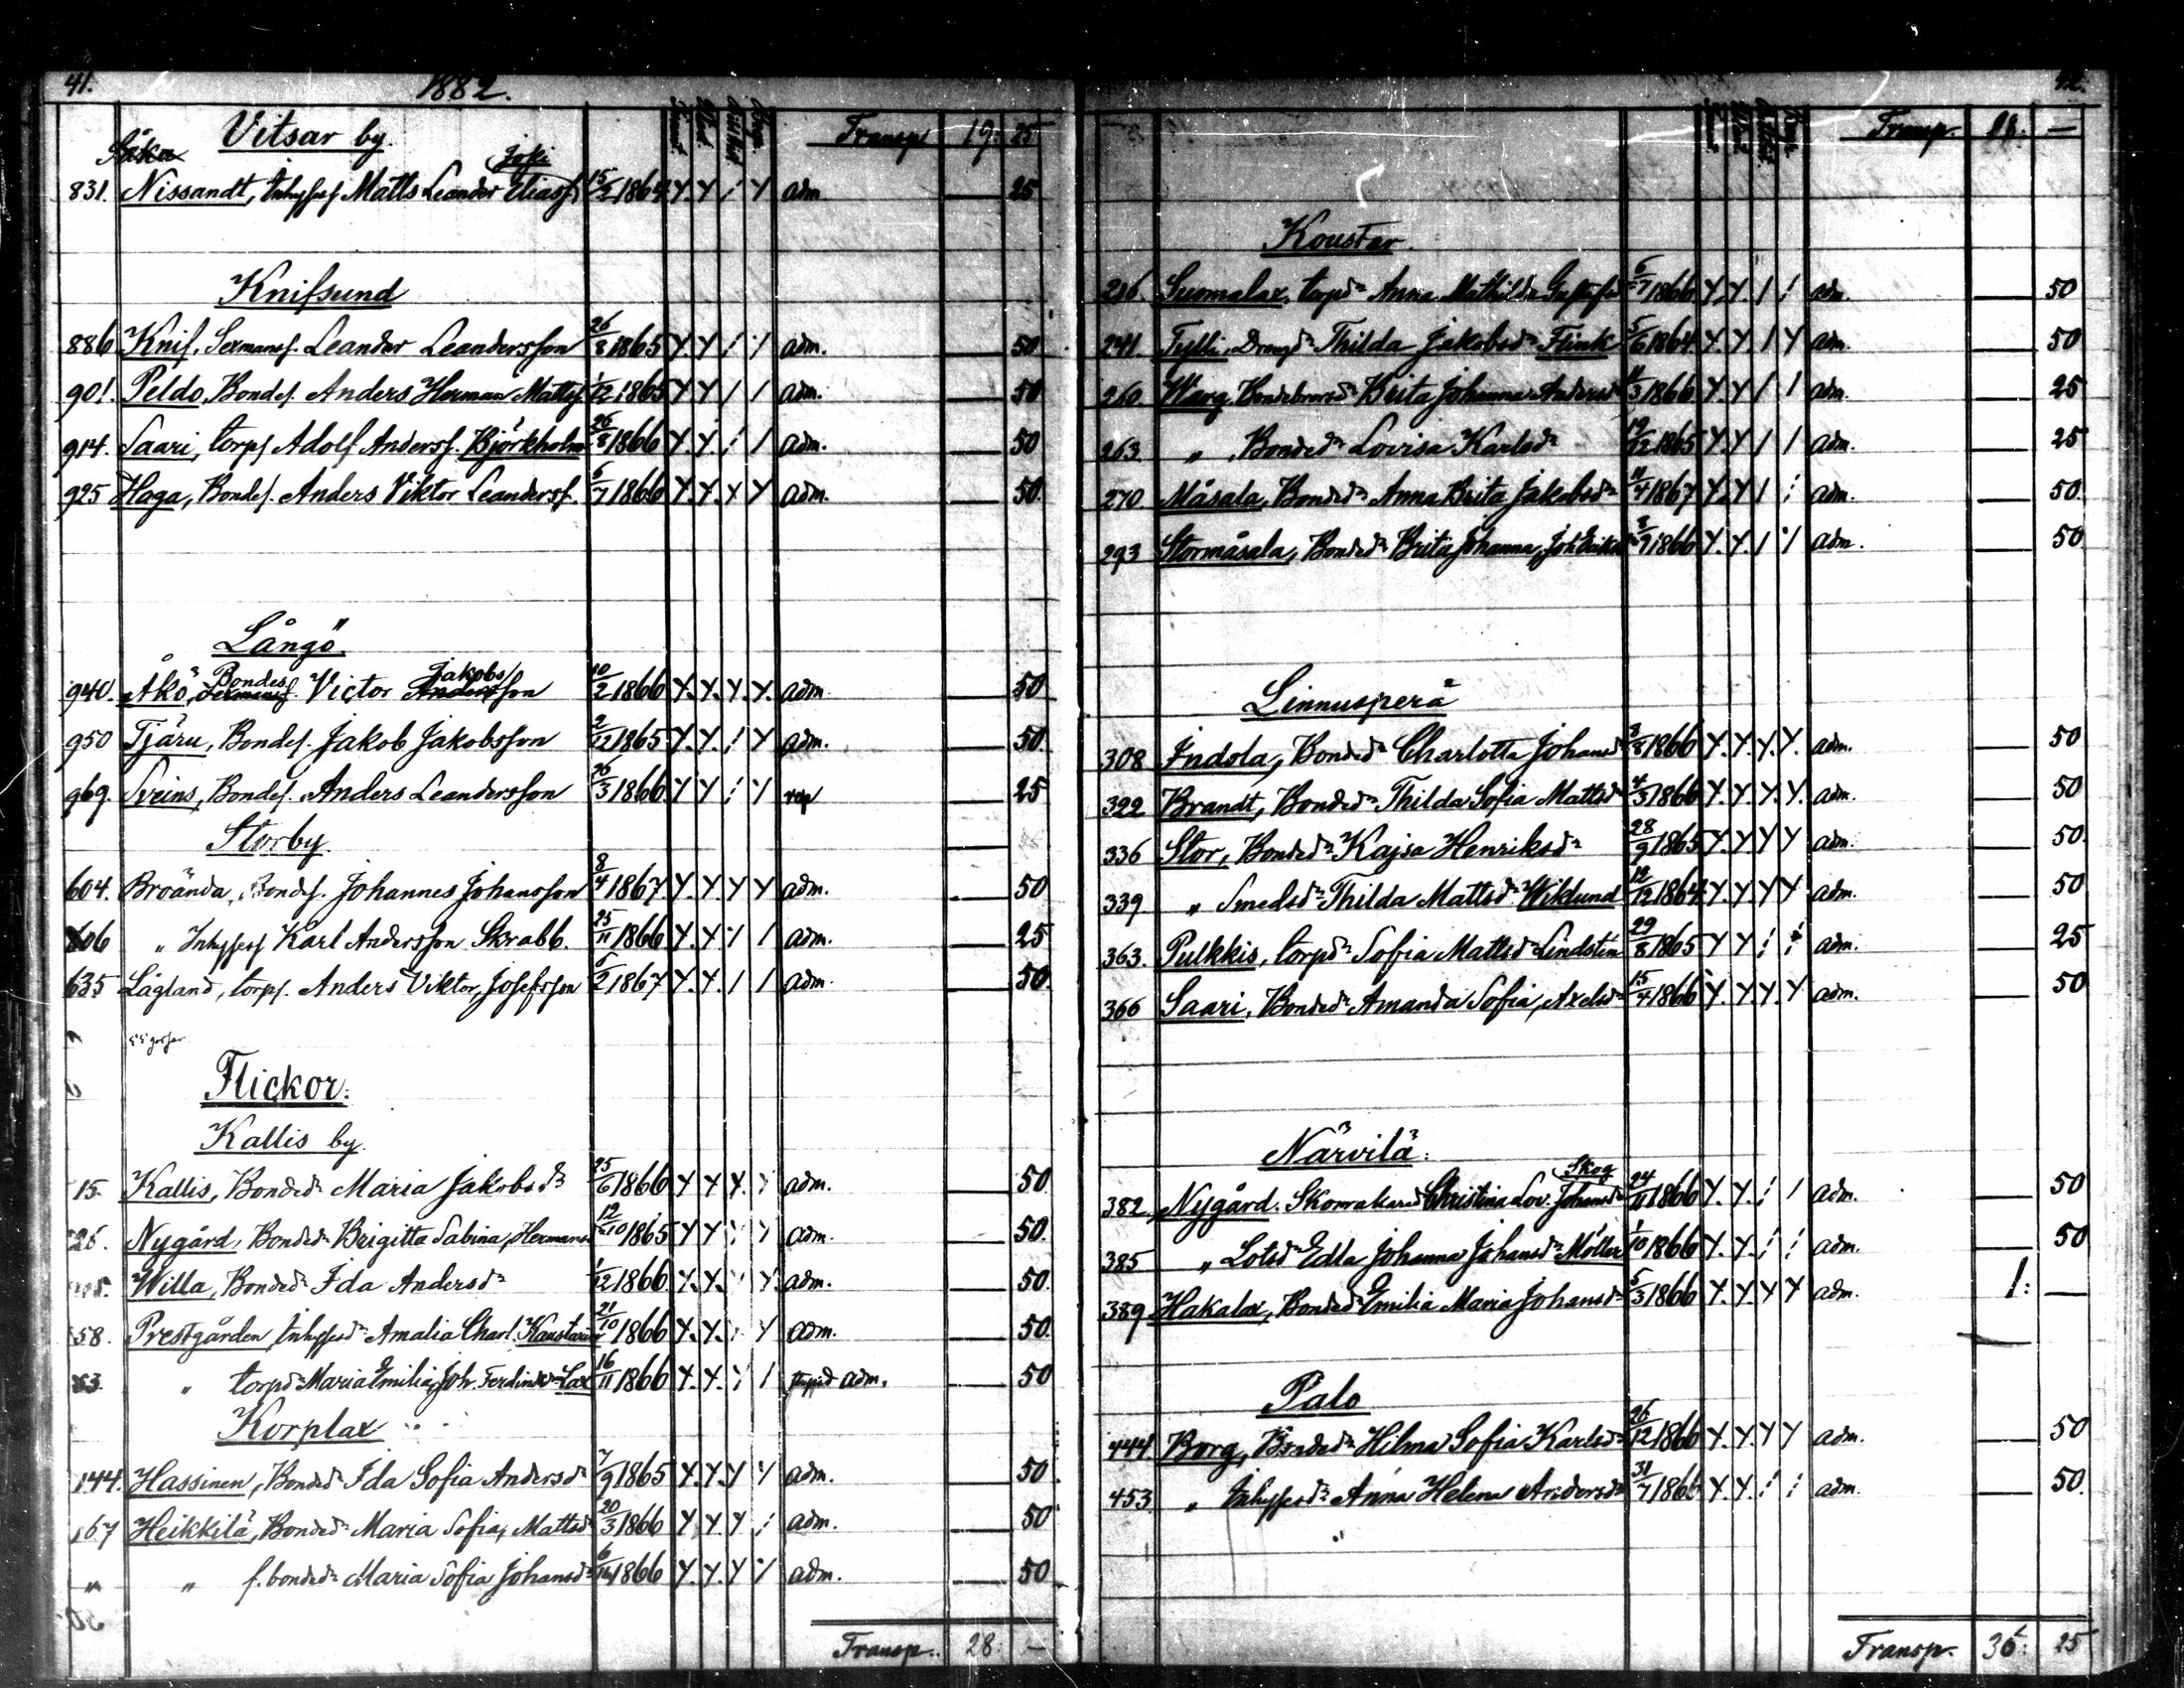 41.
1882.
Vitsar by.
Transp 19: 25
Josi
831. Nissandt, Inhysess Matts Leander Eliass 15/2 1864 adm. — 25
Knifsund
886 Knif, Sexmans. Leander Leandersson 26/8 1865 adm. — 50
901. Peldo, Bondes. Anders Herman Mattss. 1/12 1865 adm. — 50
914. Saari, torps Adolf Anderss. Björkholm 26/8 1866 adm. — 50
925 Haga, Bondes. Anders Viktor Leanderss. 6/7 1866 adm. — 50.
Långö
Bondes Jakobs
940. Åkö, Sexmans. Victor Andersson 10/2 1866 adm. — 50
950 Tjäru, Bondes. Jakob Jakobsson 2/12 1865 adm. — 50.
969. Sveins, Bondes. Anders Leandersson 26/3 1866 — 25
Storby
604. Broända, Bondes. Johannes Johansson 8/4 1867 adm. — 50
606 " Inhysess Karl Andersson Skrabb. 25/11 1866 adm. — 25
635 Lågland, torps. Anders Viktor, Josefsson 5/2 1867 adm. — 50.
55 gossar
Flickor:
Kallis by.
15. Kallis, Bonded:r Maria Jakobsd:r 25/6 1866 adm. — 50.
26. Nygård, Bonded:r Brigitta Sabina, Hermans 12/10 1865 adm. — 50.
Willa, Bonded:r Ida Andersd:r 1/12 1866 adm. — 50.
58. Prestgården, Inhysesd:r Amalia Charl. Kaustar 21/10 1866 adm. — 50.
83. " torpd:r Maria Emilia, Joh. Ferdinandsd:r Lax 16/11 1866 adm. — 50
Korplax
144. Hassinen, Bonded:r Ida Sofia Andersd:r 7/9 1865 adm. — 50.
167 Heikkilä, Bonded:r Maria Sofia, Mattsd:r 20/3 1866 adm. — 50
" " f. bonded:r Maria Sofia Johansd:r 1866 adm. — 50
Transp. 28: —
42.
Transp. 28: —
Koustar.
236. Suomalax, torpd:r Anna Mathilda Gustafsd 6/7 1866 adm. — 50
241. Tylli, Drengd:r Thilda Jakobsd:r Flink 5/6 1864 adm. — 50
260 Warg, Bondebrorsd:r Brita Johanna Andersd 11/3 1866 adm. — 25
263. " Bonded:r Lovisa Karlsd:r 19/12 1865 adm. — 25
270. Måsala, Bonded:r Anna Brita Jakobsd:r 11/4 1867 adm. — 50.
293 Stormåsala, Bonded:r Brita Johanna, Joh. Eriksd 8/9 1866 adm. — 50
Linnusperä
308 Indola, Bonded:r Charlotta Johansd 8/8 1866 adm. — 50
322 Brandt, Bonded:r Thilda Sofia Mattsd 4/3 1866 adm. — 50
336 Stor, Bonded:r Kajsa Henriksd:r 28/9 1865 adm. — 50.
339 " Smedsd:r Thilda Mattsd:r Wiklund 12/12 1864 adm. — 50
363. Pulkkis, torpd:r Sofia Mattsd:r Lindsten 29/8 1865 adm. — 25
366 Saari, Bonded:r Amanda Sofia, Axelsd:r 15/4 1866 adm. — 50
Närvilä:
Skog
382 Nygård. Skomakared Christina Lov. Johansd:r 24/11 1866 adm. — 50
385 " Lotsd:r Edla Johanna Johansd:r Möller 1/10 1866 adm. — 50
389 Hakalax, Bonded:r Emilia Maria Johansd:r 5/3 1866 adm. 1: —
Palo
444. Borg, Bonded:r Hilma Sofia Karlsd:r 26/12 1866 adm. — 50
453 " Inhysesd:r Anna Helena Andersd:r 31/7 1866 adm. — 50.
Transp. 36: 25